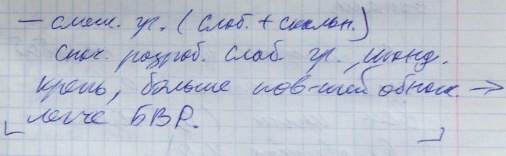 — смеш. гр. (слаб. + скальн.)
снач. разраб. слаб гр., 
крепь, больше пов-тей обнаж. →
легче БВР.